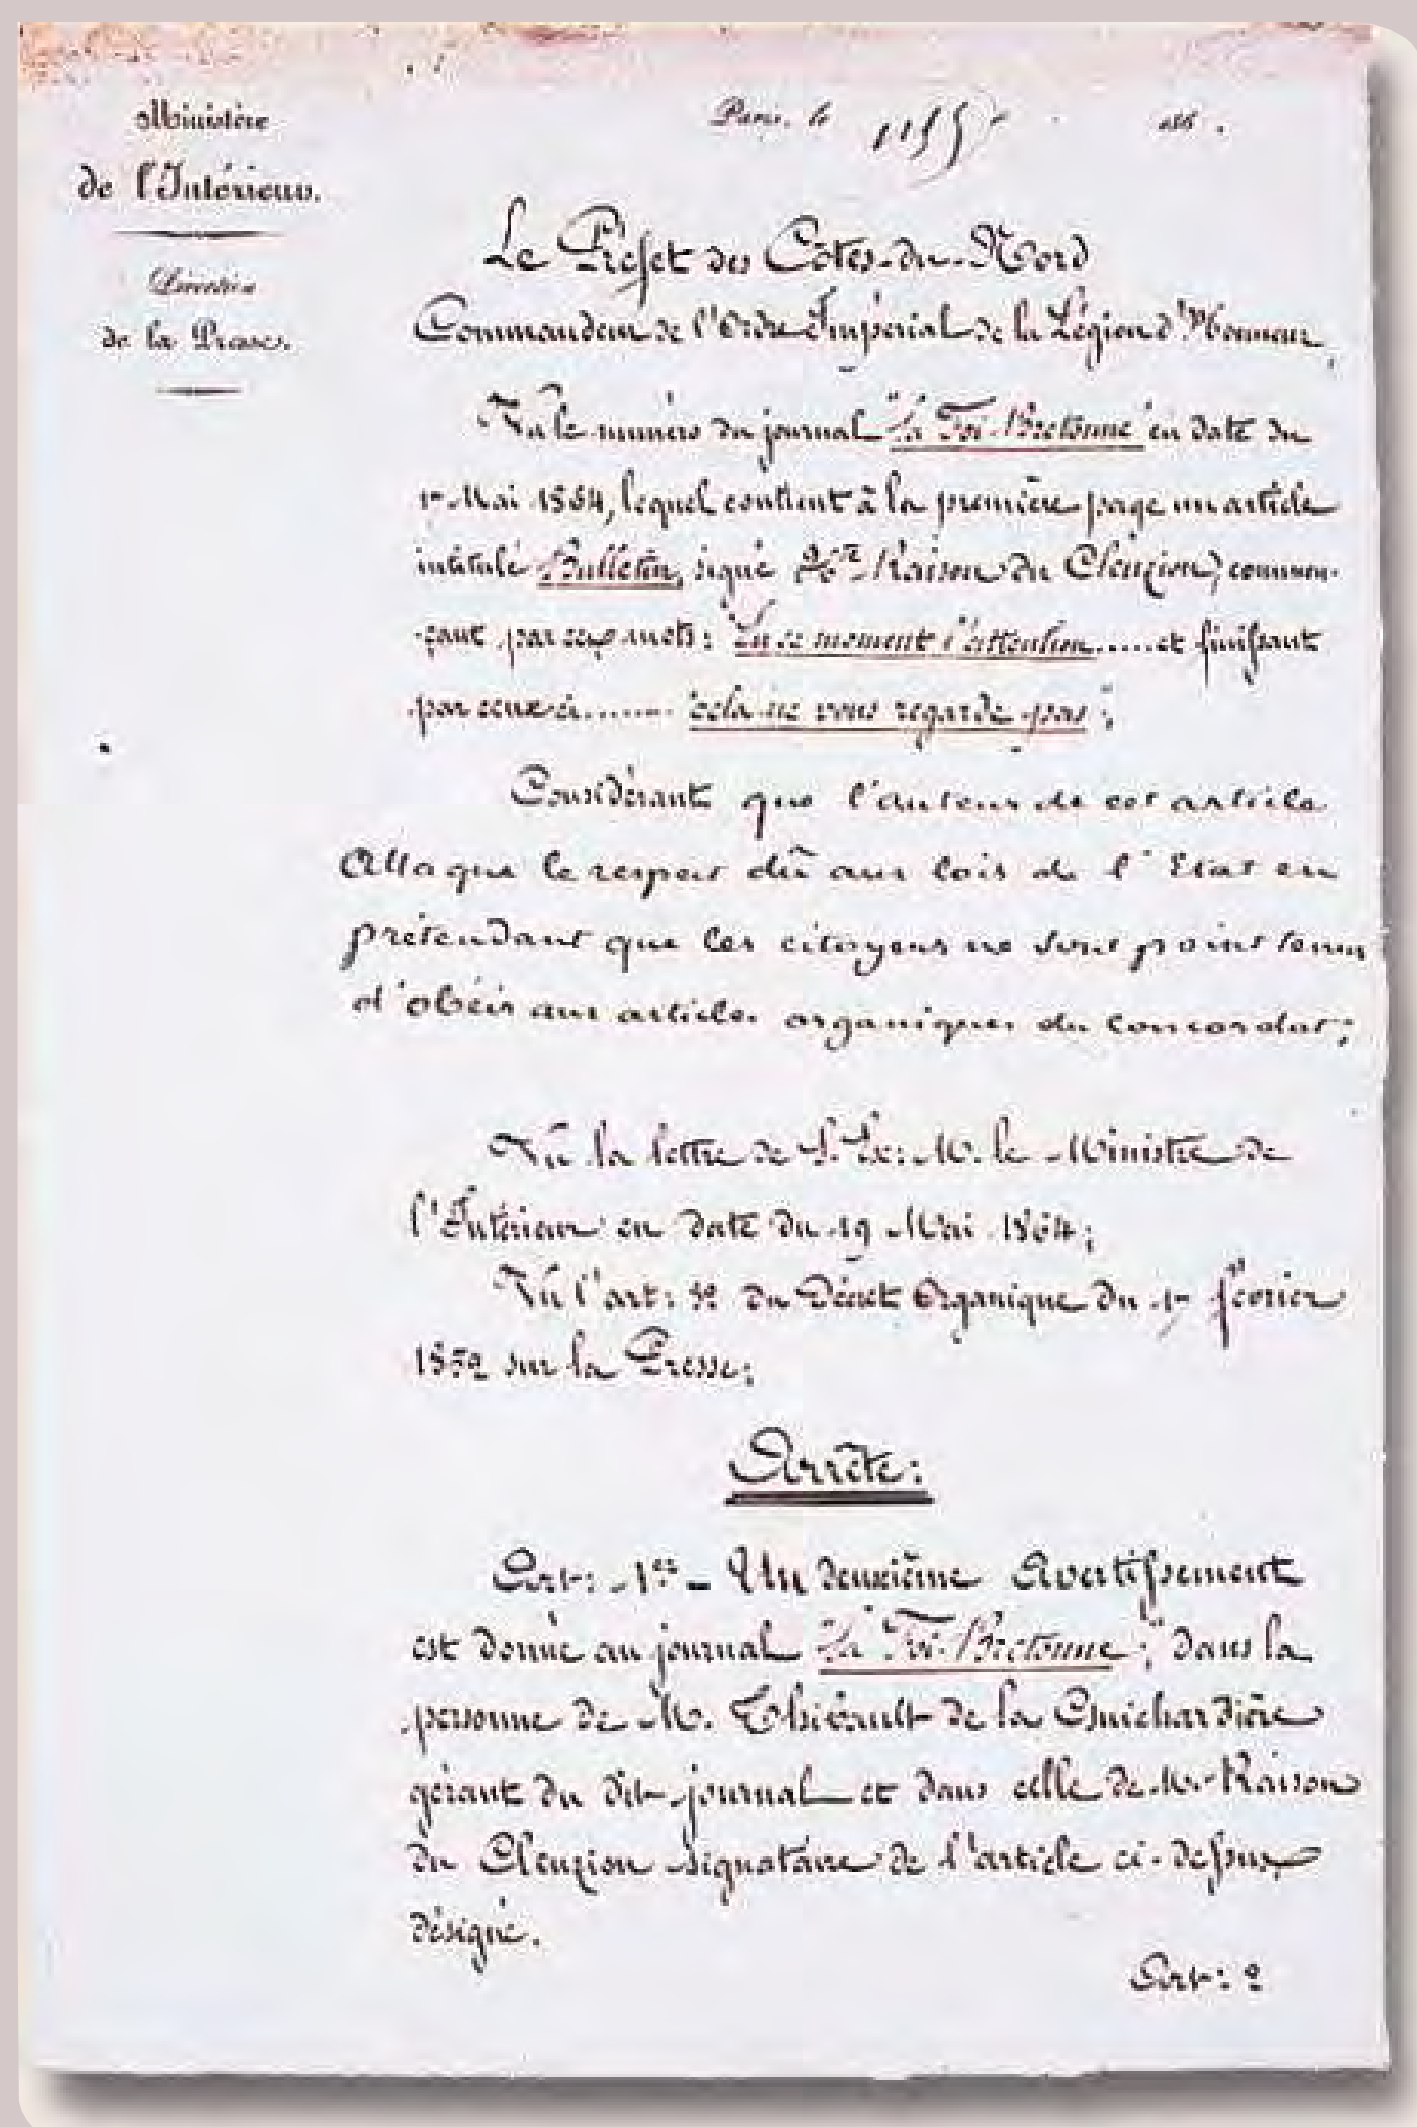 Ministère
de l'Intérieur.
Direction
de la Presse.
Paris, le 186 .
Le Préfet des Côtes-du-Nord
Commandeur de l'Ordre Impérial de la Légion d'Honneur,
Vu le numéro du journal "La Foi Bretonne" en date du
1er Mai 1864, lequel contient à la première page un article
intitulé Bulletin, signé Raison du Cleuziou, commen-
-çant par ces mots: En ce moment l'attention..... et finissant
par ceux-ci....... cela ne vous regarde pas;
Considérant que l'auteur de cet article
Attaque le respect dû aux lois de l'Etat en
prétendant que les citoyens ne sont point tenus
d'obéir aux articles organiques du concordat;
Vu la lettre de S. Ex: M. le Ministre de
l'Intérieur en date du 19 Mai 1864;
Vu l'art: du Décret Organique du février
1852 sur la Presse;
Arrête:
Art: 1er - Un deuxième Avertissement
est donné au journal "La Foi Bretonne;" dans la
personne de M. Thiérault de la Guichardière
gérant du dit journal et dans celle de M. Raison
du Cleuziou signataire de l'article ci-dessus
désigné.
Art: 2